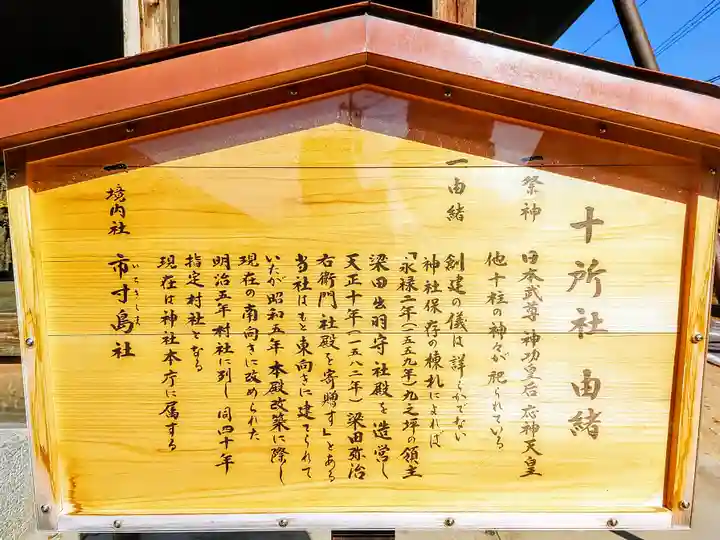 十所社 由緒
一 祭神 日本武尊 神功皇后 応神天皇
他十柱の神々が祀られている
一 由緒
創建の儀は詳らかでない
神社保存の棟札によれば
「永禄二年(一五五九年)九之坪の領主
梁田出羽守社殿を造営し
天正十年(一五八二年)梁田弥治
右衛門社殿を寄贈す」とある
当社はもと東向きに建てられて
いたが昭和五年本殿改築に際し
現在の南向きに改められた
明治五年村社に列し同四十年
指定村社となる
現在は神社本庁に属する
一 境内社 市寸島社
いちきしま